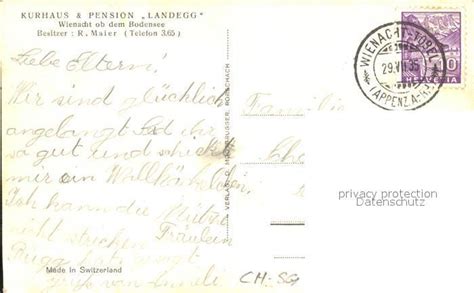 KURHAUS & PENSION „LANDEGG"
Wienacht ob dem Bodensee
Besitzer: R. Maier (Telefon 3.65)
Liebe Eltern!
Wir sind glücklich
angelangt. Seid ihr
so gut und schickt
mir ein
Ich kann die Mütze
nicht stricken Fräulein
Rüegg hat
gruss von Anneli
Made in Switzerland
VERLAG O. RORSCHACH
WIENACHT-TOBEL
29.VII.35
(APPENZ. A.-RH.)
10
HELVETIA
Familie
privacy protection
Datenschutz
CH-SG